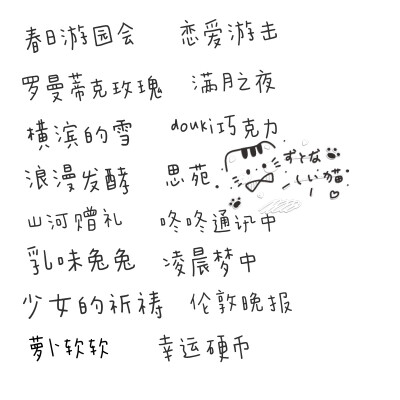 春日游园会 恋爱游击
罗曼蒂克玫瑰 满月之夜
横滨的雪 douki巧克力
浪漫发酵 思苑。
ずとな
しい猫
山河赠礼 咚咚通讯中
乳味兔兔 凌晨梦中
少女的祈祷 伦敦晚报
萝卜软软 幸运硬币